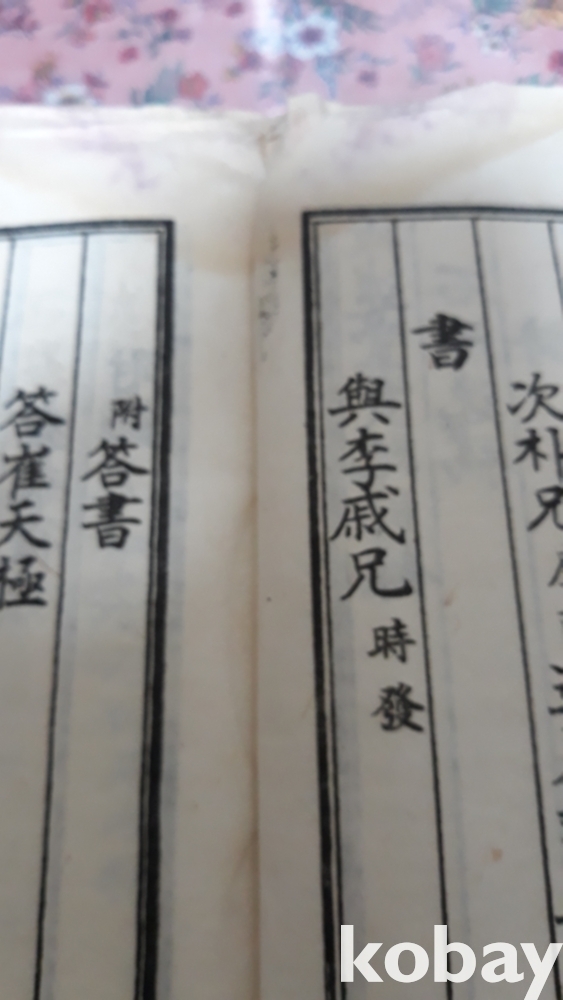 次朴兄
書
與李戚兄 時發
附答書
答崔天極
kobay